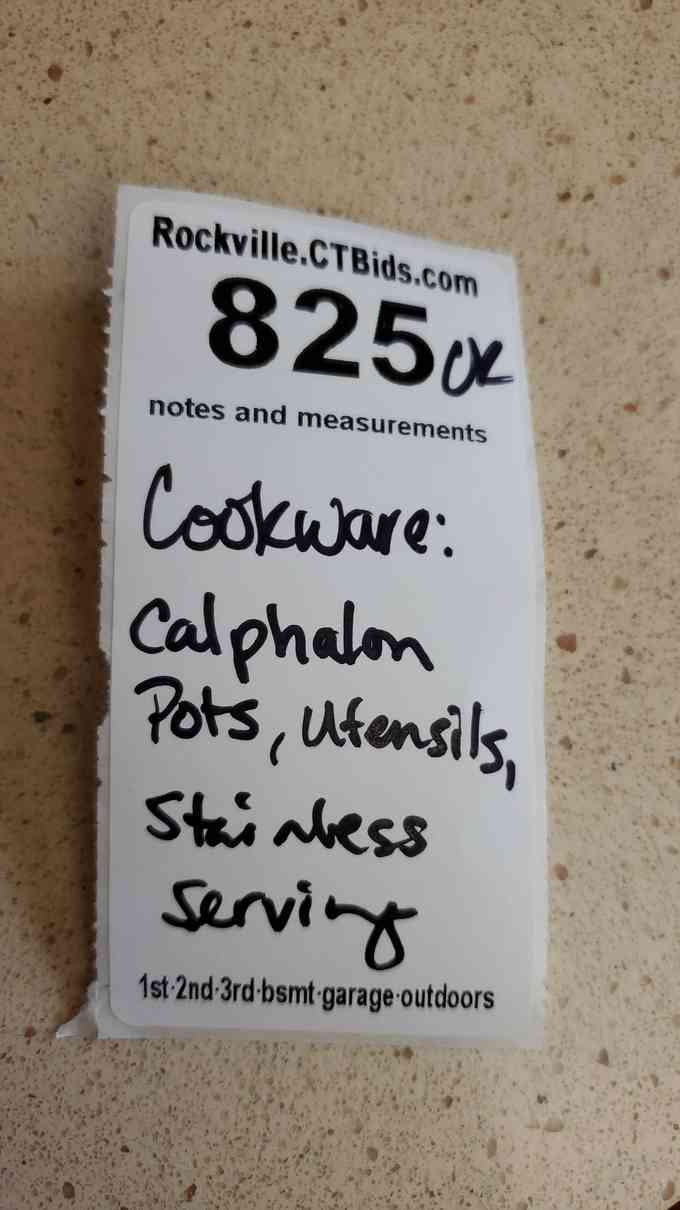 Rockville.CTBids.com
825 OK
notes and measurements
Cookware:
Calphalon
Pots, Utensils,
Stainless
Serving
1st·2nd·3rd·bsmt·garage·outdoors